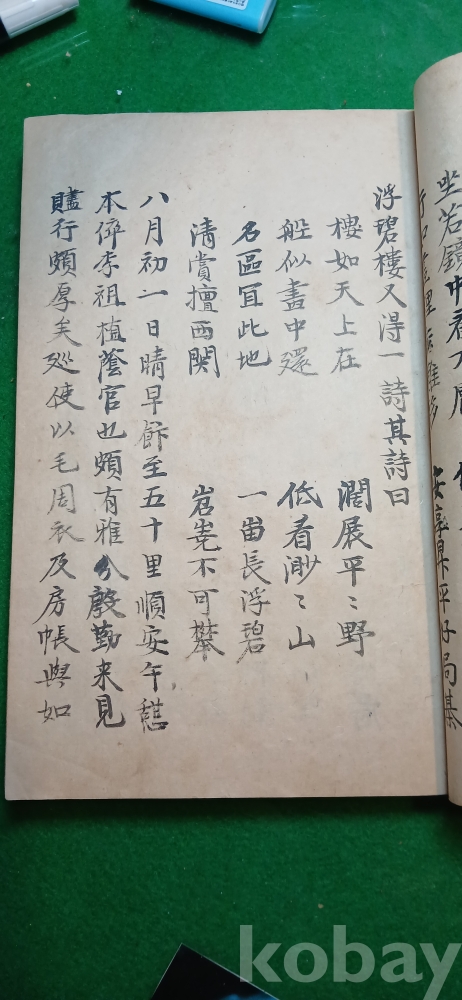 坐若鏡中看
浮碧樓又得一詩其詩曰
樓如天上在 濶展平〻野
船似畵中還 低看渺〻山
名區冝此地 一畄長浮碧
清賞擅西関 岧嶤不可攀
八月初一日晴早飰至五十里順安午憇
本倅李祖植蔭官也頗有雅分殷勤来見
贐行頗厚矣廵使以毛周衣及房帳與如
kobay